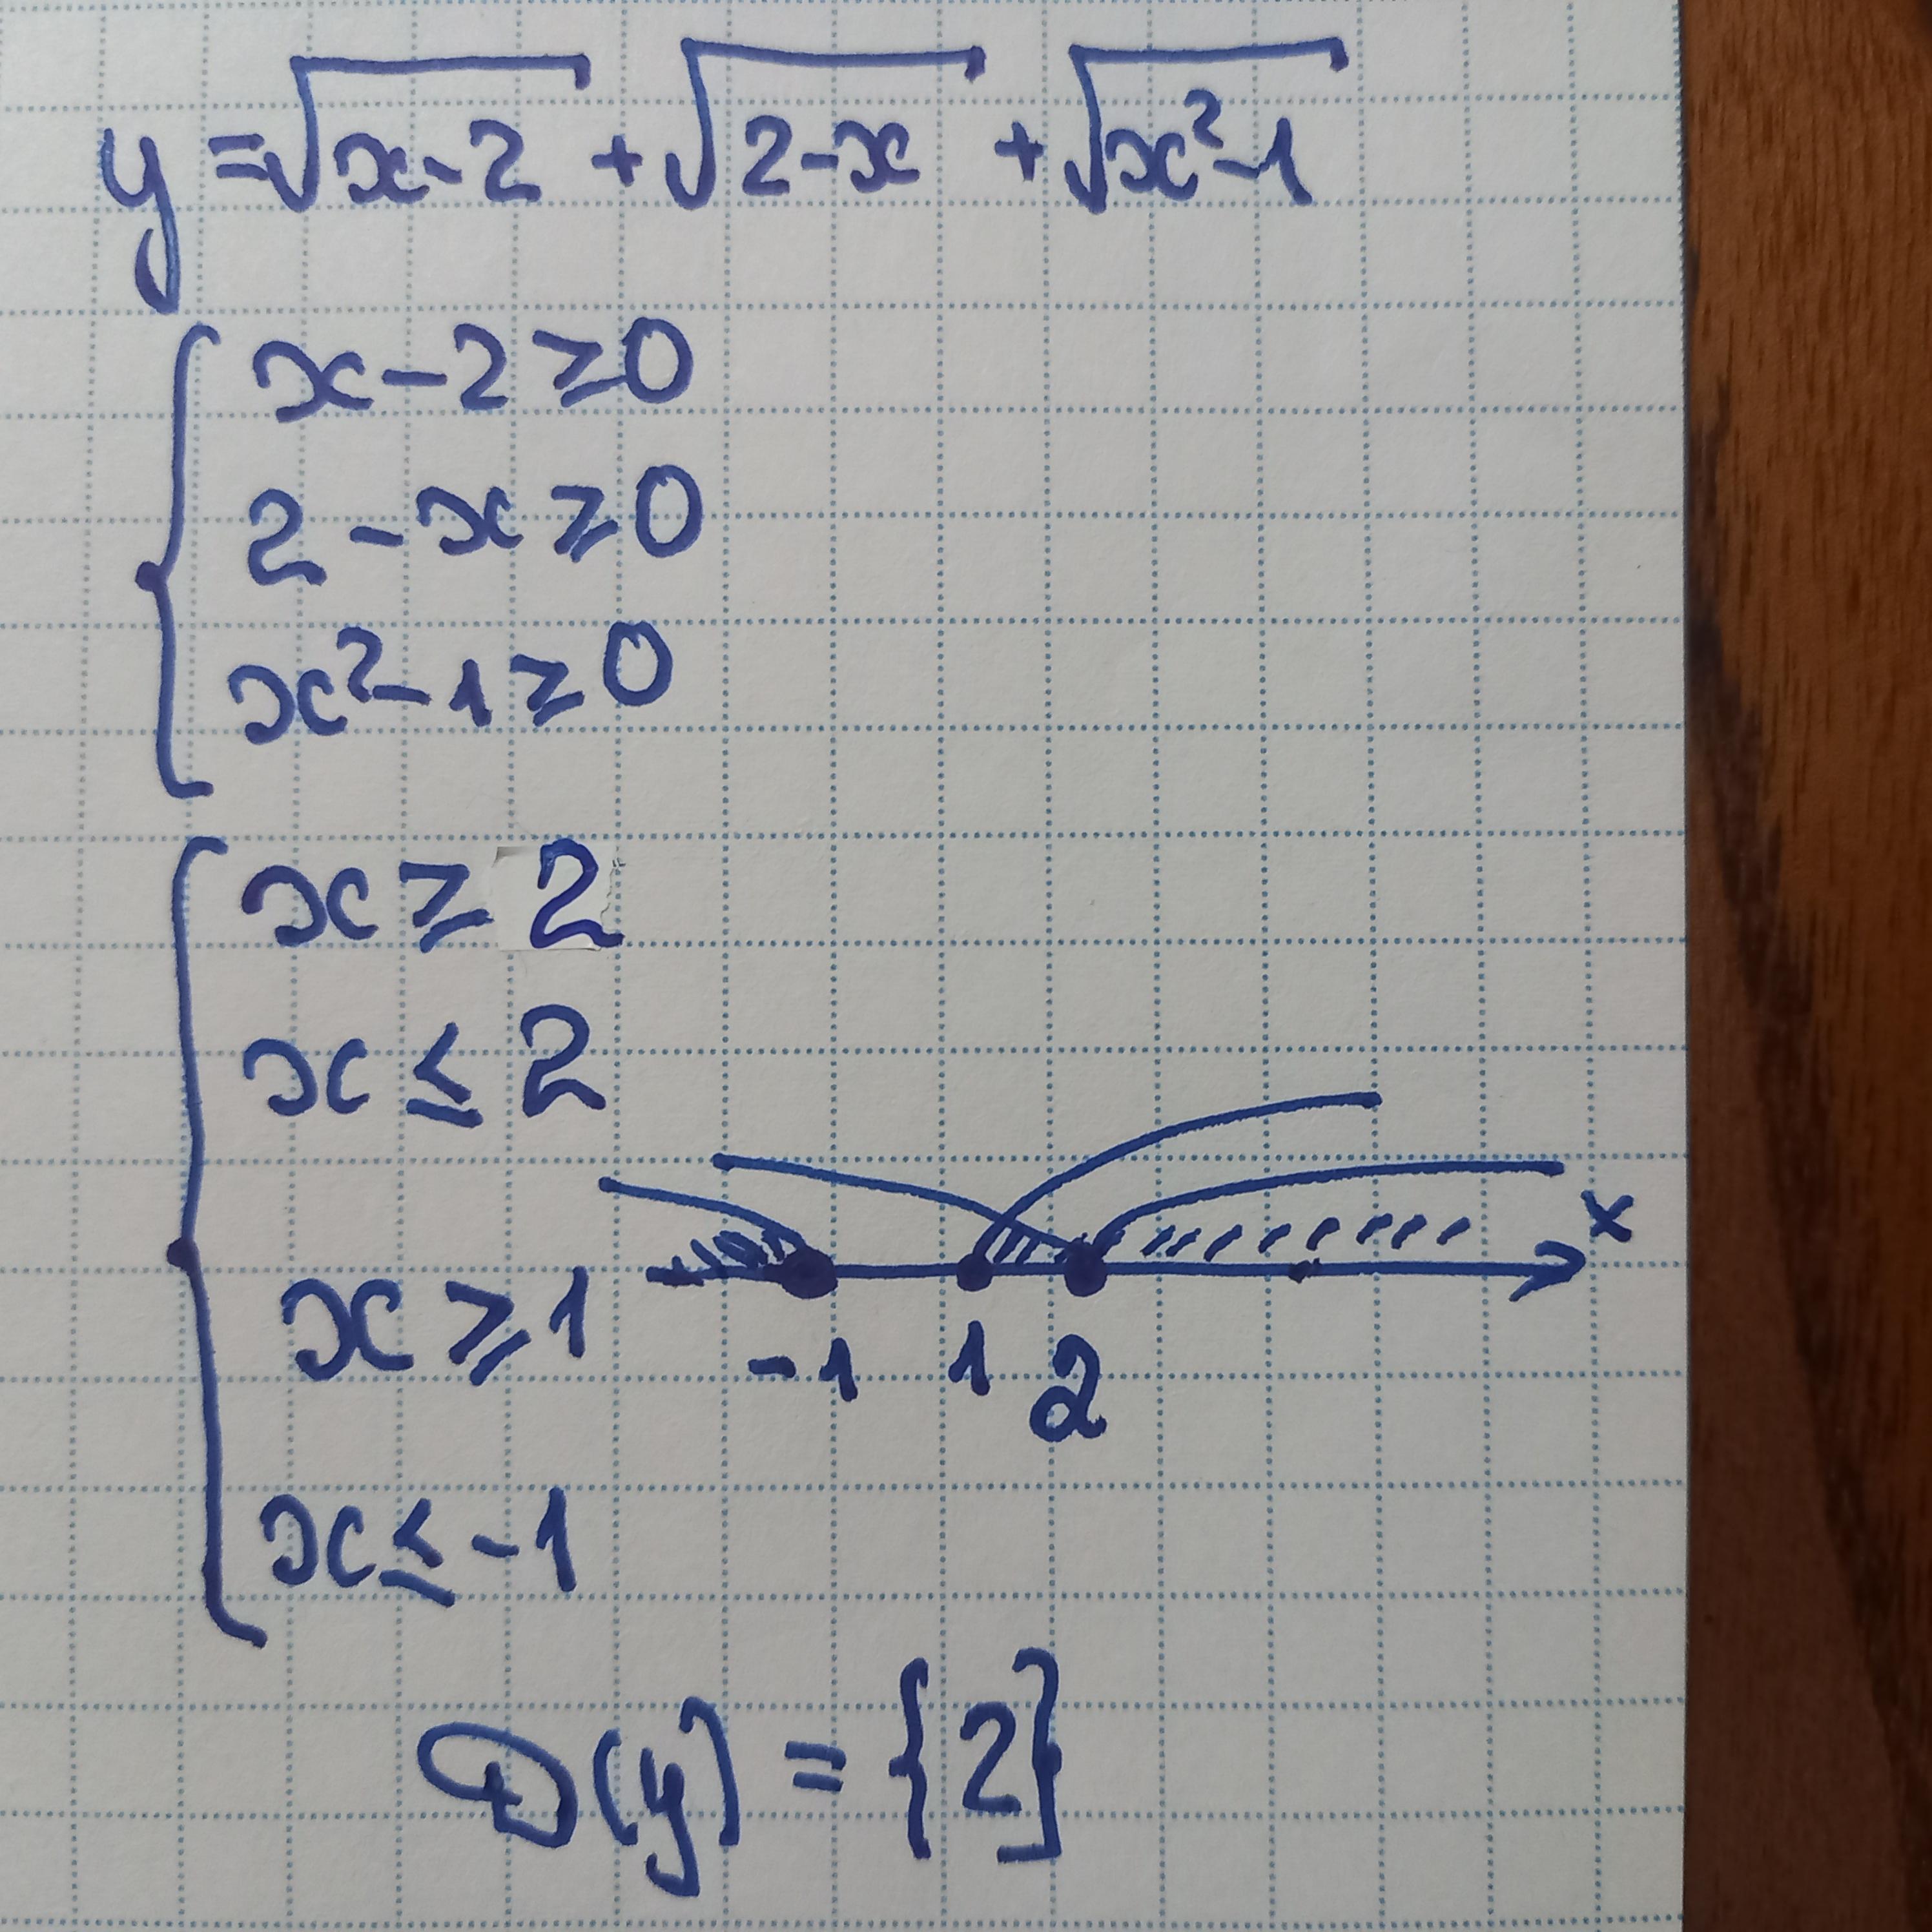 y = √x-2 + √2-x + √x²-1
x-2≥0
2-x≥0
x²-1≥0
x≥2
x≤2
x≥1
x≤-1
x
-1 1 2
D(y) = {2}